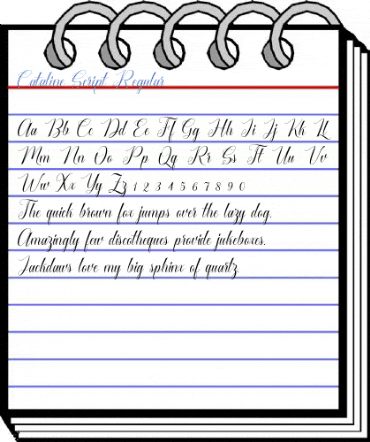 Cataline Script Regular
Aa Bb Cc Dd Ee Ff Gg Hh Ii Jj Kk LL
Mm Nn Oo Pp Qq Rr Ss Tt Uu Vv
Ww Xx Yy Zz 1 2 3 4 5 6 7 8 9 0
The quick brown fox jumps over the lazy dog.
Amazingly few discotheques provide jukeboxes.
Jackdaws love my big sphinx of quartz.